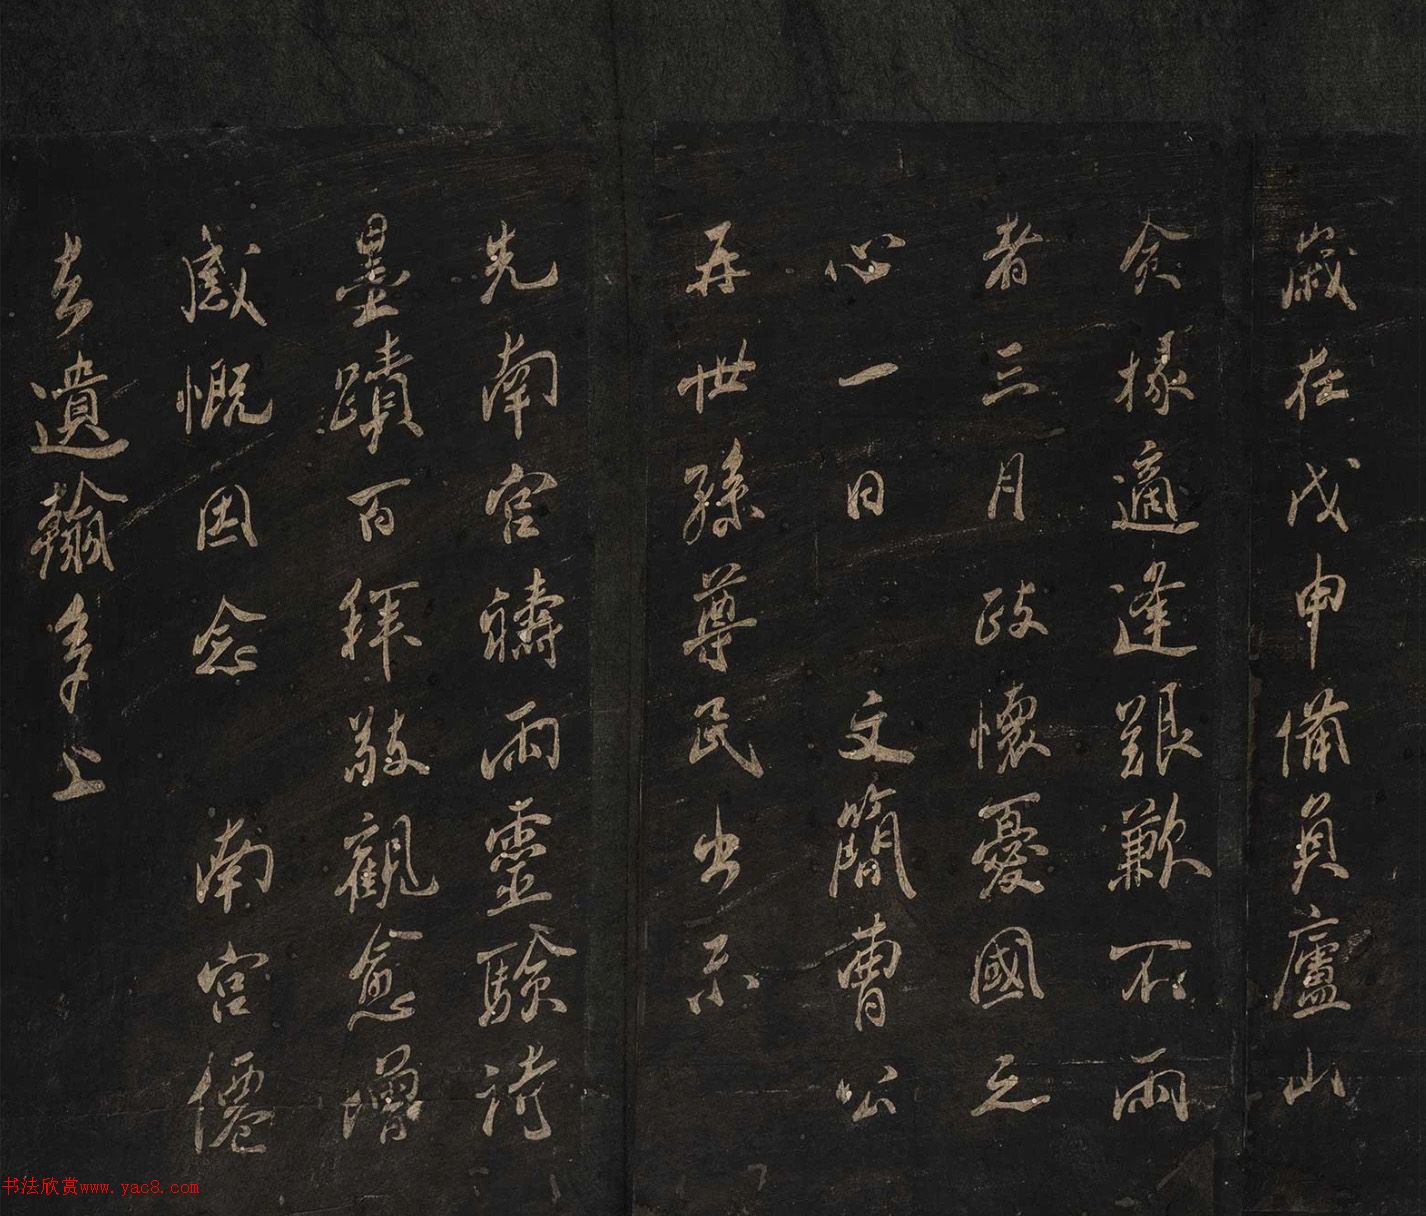 歲在戊申備員廬山
僉椽適逢艱歉不雨
者三月政懷憂國之
心一日文簡曹公
再世孫尊民出示
先南宮禱雨靈驗詩
墨蹟百拜敬觀愈增
感慨因念南宮僊
去遺翰多上
书法欣赏www.yac8.com